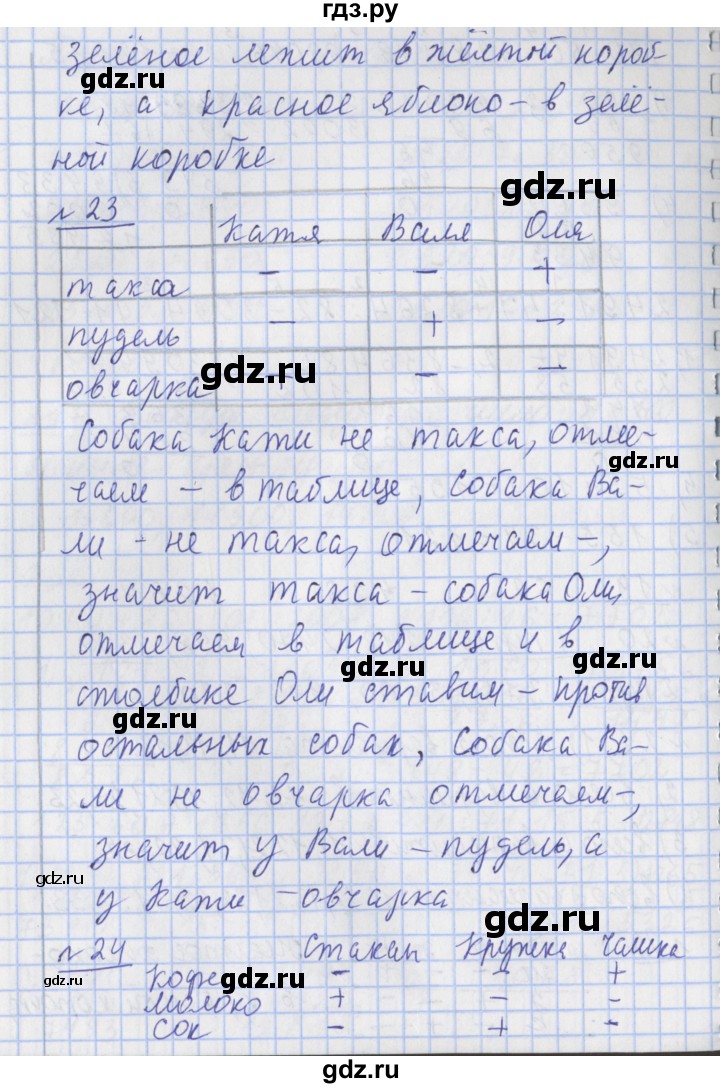 гдз.ру
зелёное лежит в жёлтой короб-
gdz.ru
gdz.ru
ке, а красное яблоко - в зелё-
ной коробке
gdz.ru
№ 23
Катя Валя Оля
такса - - +
пудель - + -
gdz.ru
овчарка + - -
Собака Кати не такса, отме-
gdz.ru
чаем - в таблице, Собака Ва-
gdz.ru
ли - не такса, отмечаем -,
значит такса - собака Оли,
отмечаем в таблице и в
gdz.ru
столбике Оли ставим - против
gdz.ru
остальных собак, Собака Ва-
ли не овчарка отмечаем -,
значит у Вали - пудель, а
gdz.ru
у Кати - овчарка
gdz.ru
№ 24
Стакан Кружка Чашка
кофе - - +
gdz.ru
gdz.ru
молоко + - -
сок - + -
gdz.ru
gdz.ru